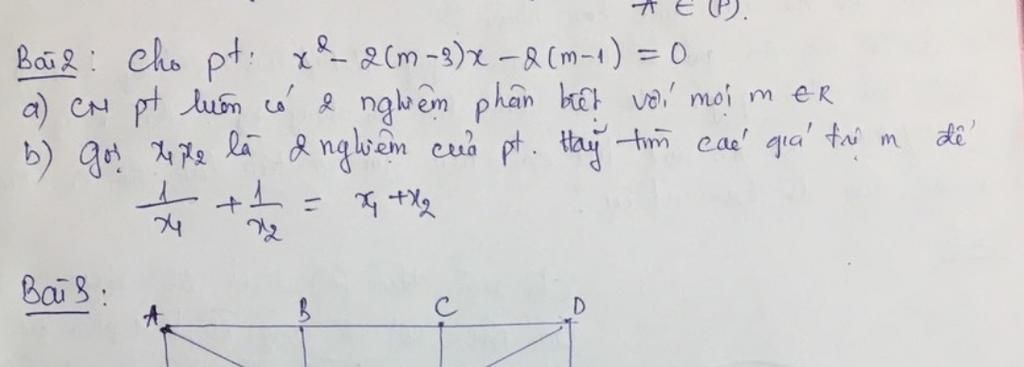 A ∈ (P).
Bài 2: Cho pt: x² - 2(m-3)x - 2(m-1) = 0
a) CM pt luôn có 2 nghiệm phân biệt với mọi m ∈ R
b) gọi x₁, x₂ là 2 nghiệm của pt. Hãy tìm các giá trị m để
1/x₁ + 1/x₂ = x₁ + x₂
Bài 3:
A B C D